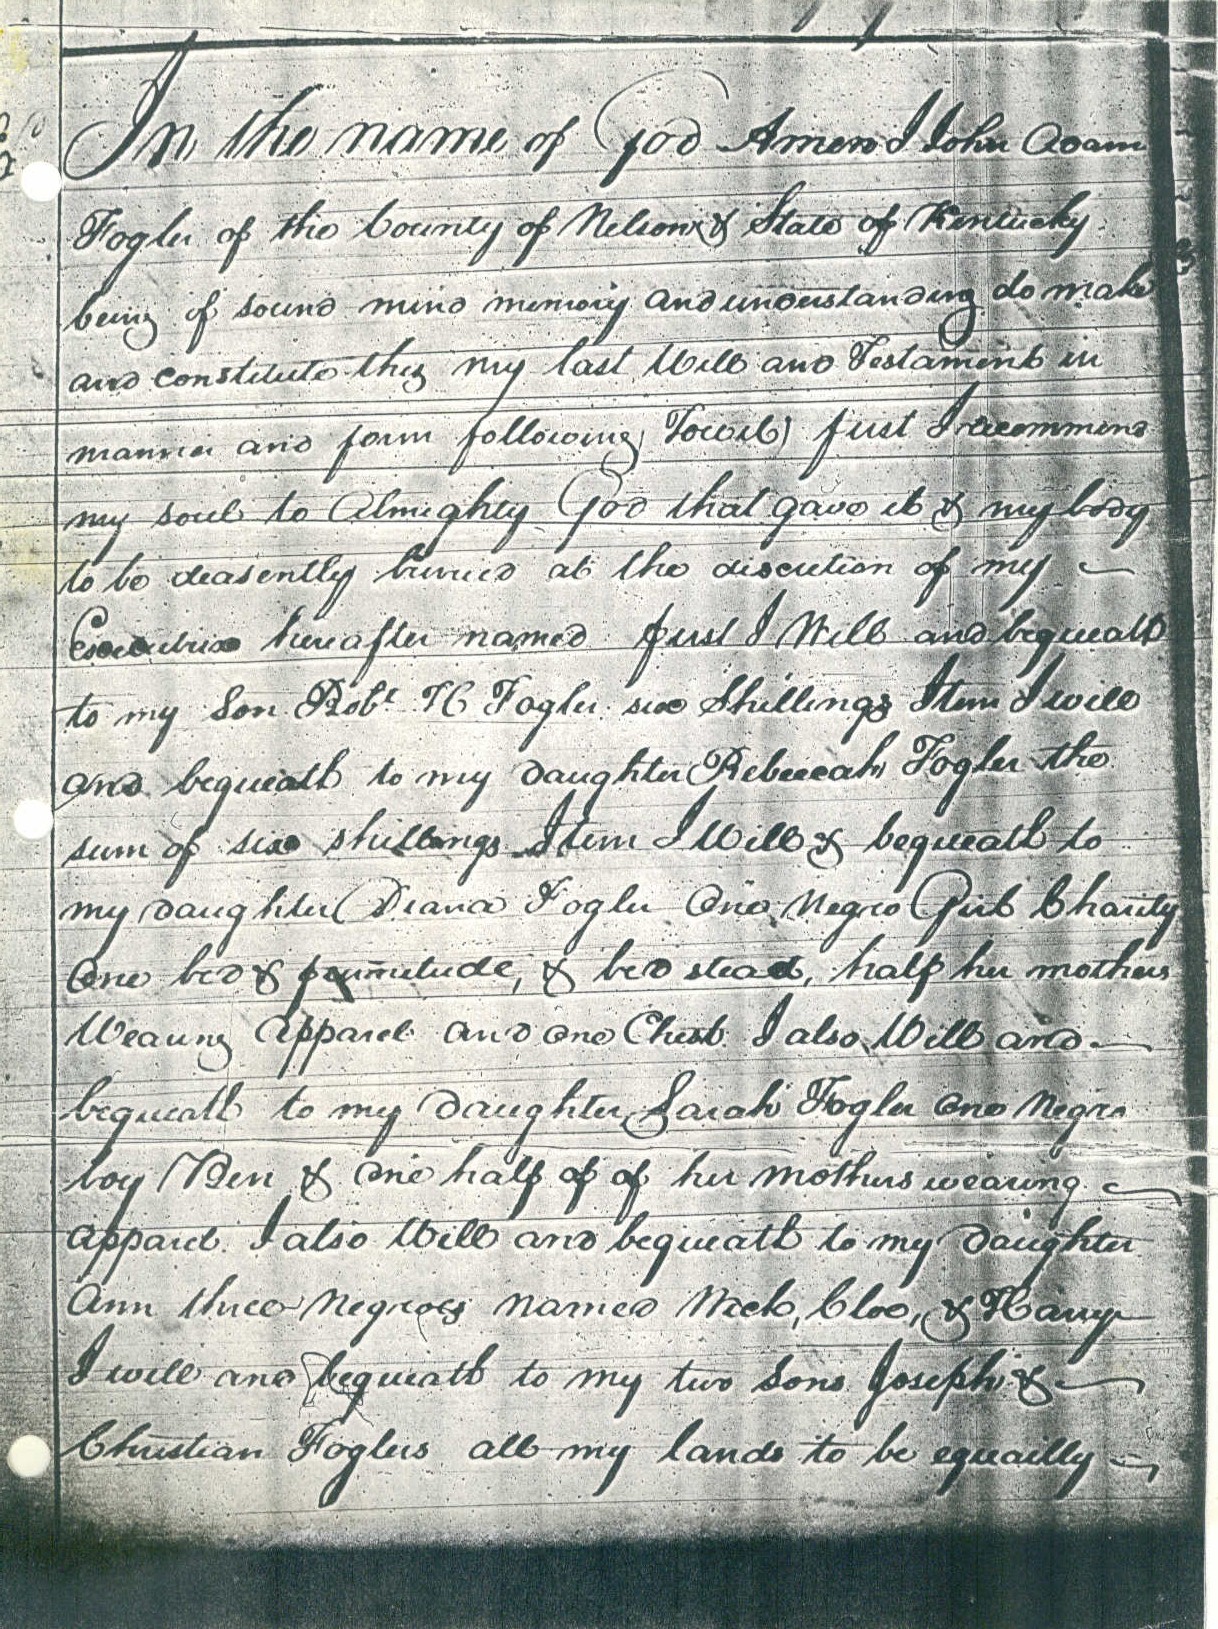 In the name of God Amen I John Adam
Fogler of the County of Nelson & State of Kentucky
being of sound mind memory and understanding do make
and constitute this my last Will and Testament in
manner and form following (Towit) first I recommend
my soul to Almighty God that gave it & my body
to be deasently buried at the discretion of my
Executrix hereafter named first I Will and bequeath
to my Son Robt. H Fogler six Shillings Item I will
and bequeath to my daughter Rebeccah Fogler the
sum of six shillings Item I Will & bequeath to
my daughter Diana Fogler One Negro Girl Charity
One bed & & bed stead, half her mothers
Wearing apparel and one Chest I also Will and
bequeath to my daughter Sarah Fogler one Negro
boy Ben & one half of of her mothers wearing
apparel. I also Will and bequeath to my daughter
Ann three Negroes named Nick, Cloe, & Harry
I will and bequeath to my two sons Joseph &
Christian Foglers all my lands to be equailly